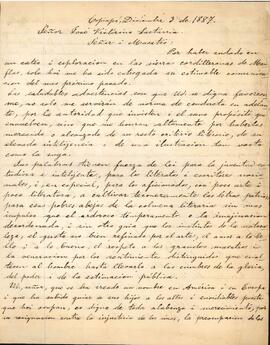 Copiapó, Diciembre 3 de 1887.
Señor José Victorino Lastarria
Señor i Maestro:
Por haber andado en
un cateo i esploracion en las sierras cordilleranas de Man-
flas, solo hoi me ha sido entregada su estimable comunica-
cion del mes próximo pasado.
Las saludables advertencias con que Ud. se digna favorecer-
me, no solo me servirán de norma de conducta en adelan-
te, por la autoridad que invisten i el sano propósito que
entrañan, sino que me honran altamente por haberlas
merecido o alcanzado de un recto criterio literario, de su
elevada inteligencia i de una ilustracion tan vasta
como la suya.
Sus palabras tienen fuerza de lei para la juventud es-
tudiosa e intelijente, para los literatos i escritores nacio-
nales i, en especial, para los aficionados, con poco arte i
poca literatura, a cultivar decorosamente las letras patrias,
para esos pobres abejas de la colmena literaria sin mas
impulsos que el ardoroso temperamento o la imajinacion
desordenada, i sin otro guia que los instintos de la natura-
leza, el gusto no bien refinado por el arte, el amor a lo be-
llo i a lo bueno, el respeto a los grandes maestros i
la veneracion por los sentimientos distinguidos que enal-
tecen al hombre hasta llevarlo a las cumbres de la gloria,
del poder i de la estimacion pública.
Ud, señor, que se ha creado un nombre en América i en Europa
i que ha sabido guiar a sus hijos a los altos i envidiables puestos
que hoi ocupan, es digno de toda alabanza i merecimiento, por
su resignacion entre la injusticia de los unos, la preocupacion de los